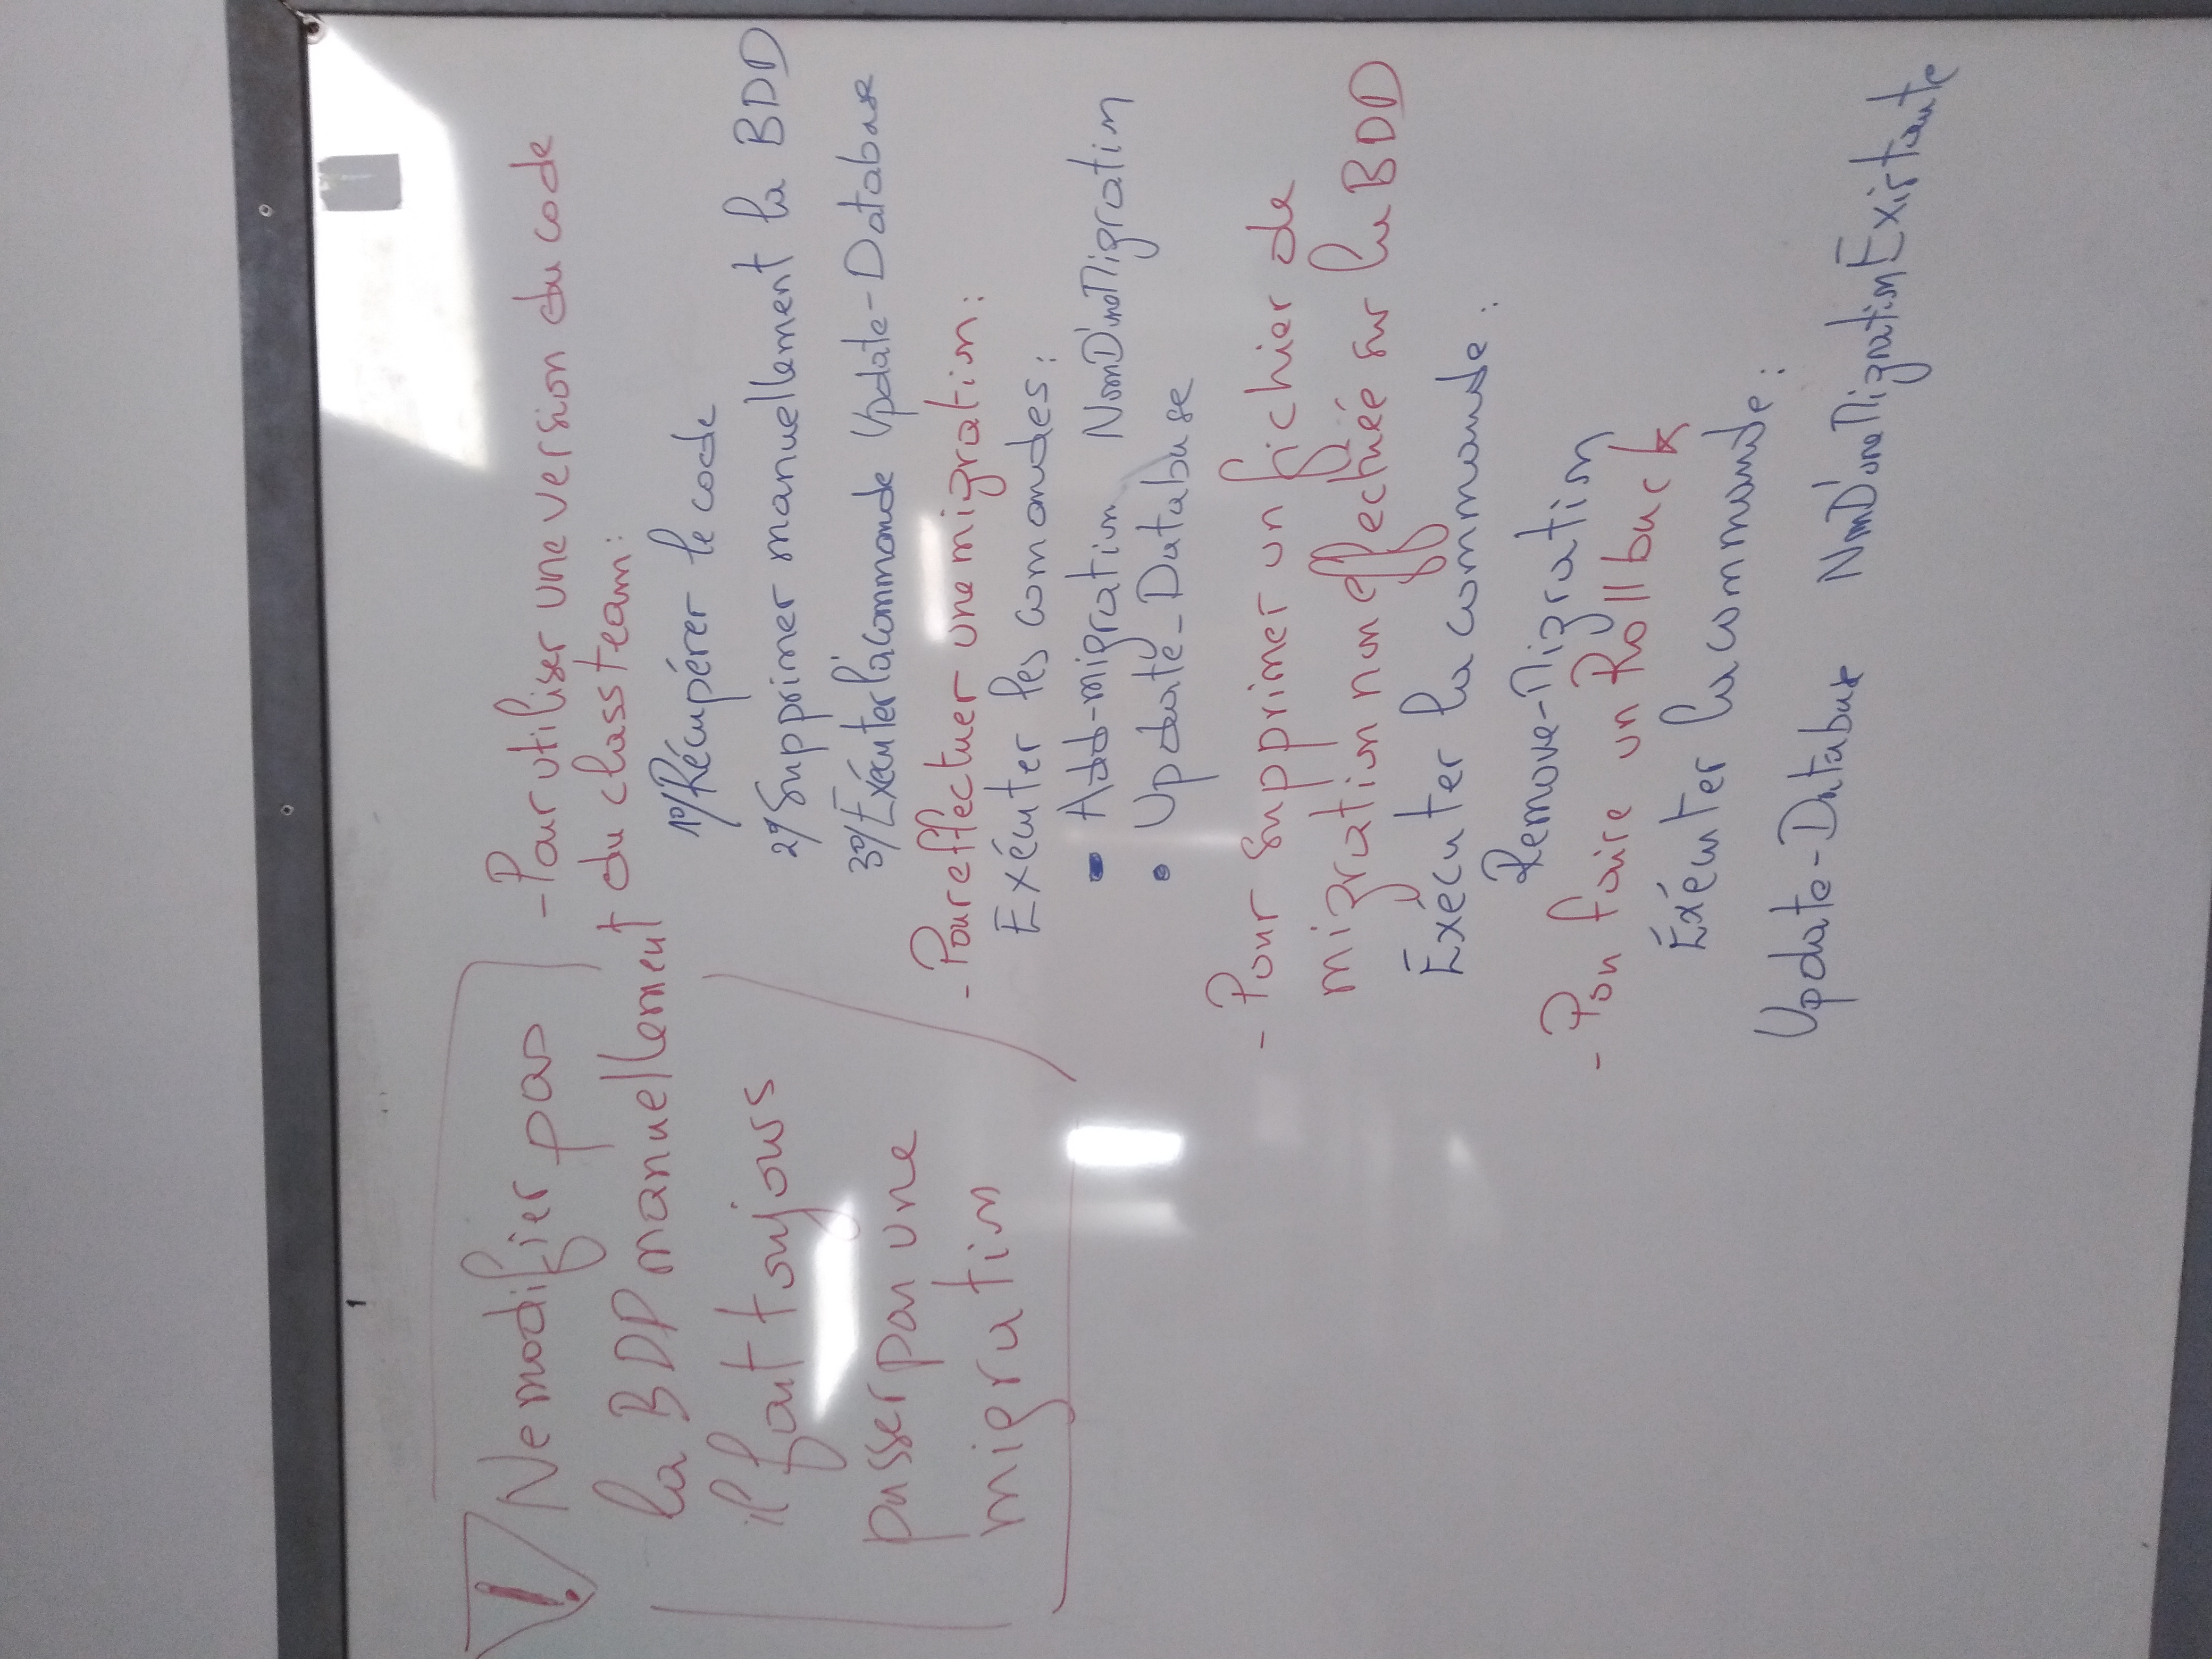 ! Ne modifier pas
la BDD manuellement
il faut toujours
passer par une
migration
- Pour utiliser une version du code
du class team :
1°/ Récupérer le code
2°/ Supprimer manuellement la BDD
3°/ Éxécuter la commande Update-Database
- Pour effectuer une migration :
Exécuter les comandes :
- Add-migration NomD'uneMigration
• Update-Database
- Pour supprimer un fichier de
migration non effectuée sur la BDD
Éxécuter la commande :
Remove-Migration
- Pour faire un Rollback
Éxécuter la commande :
Update-Database NomD'uneMigrationExistante